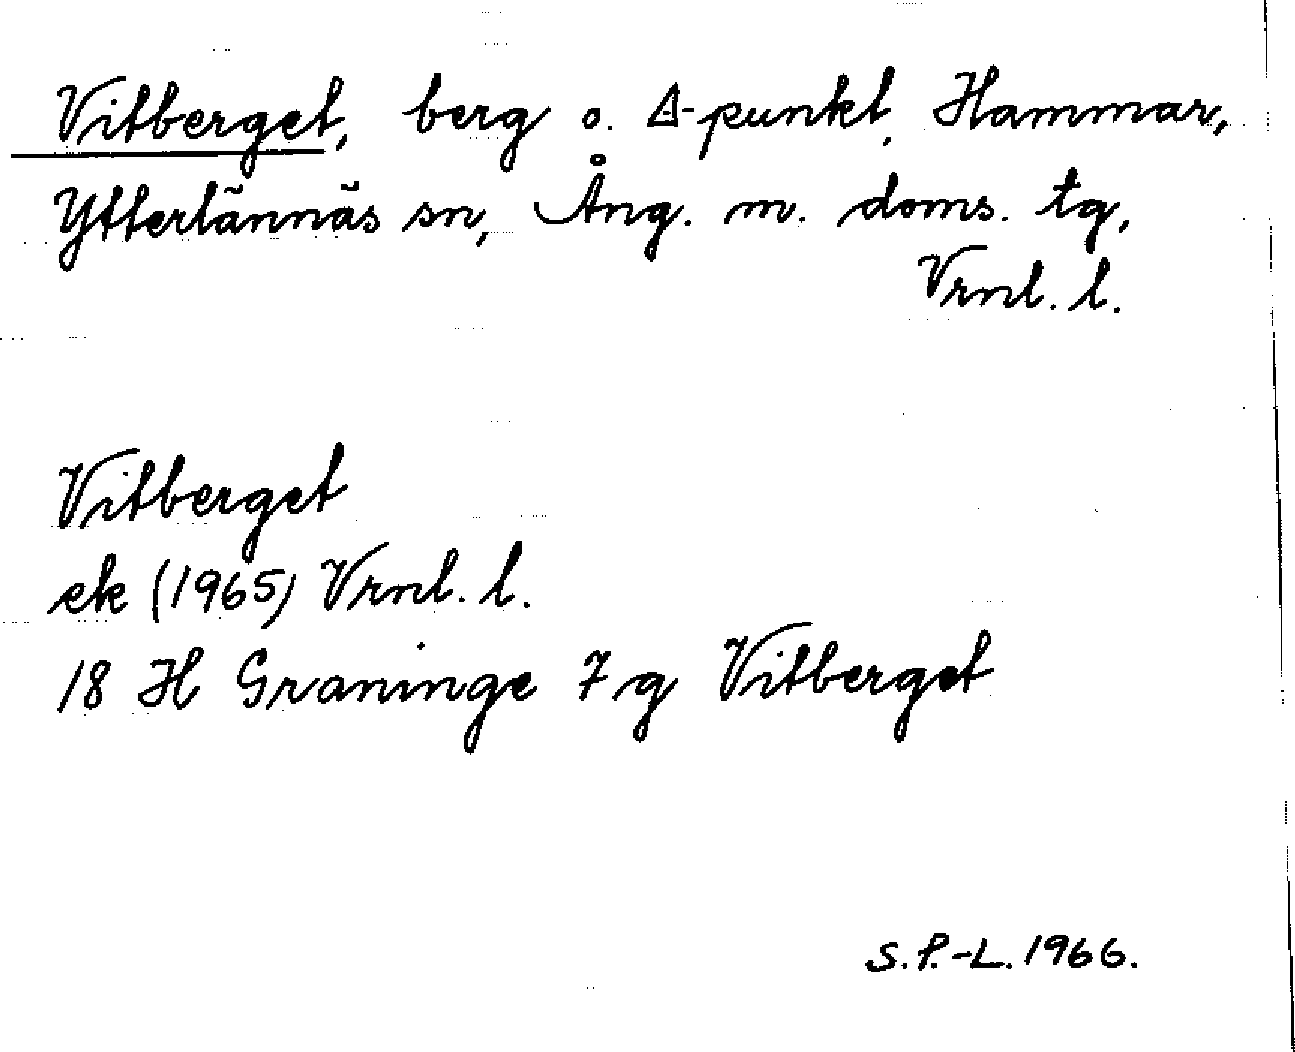 Vitberget, berg o. ∆-punkt, Hammar,
Ytterlännäs sn, Ång. m. doms. tg,
Vrnl. l.
Vitberget
ek (1965) Vrnl. l.
18 H Graninge 7 g Vitberget
S.P.-L. 1966.